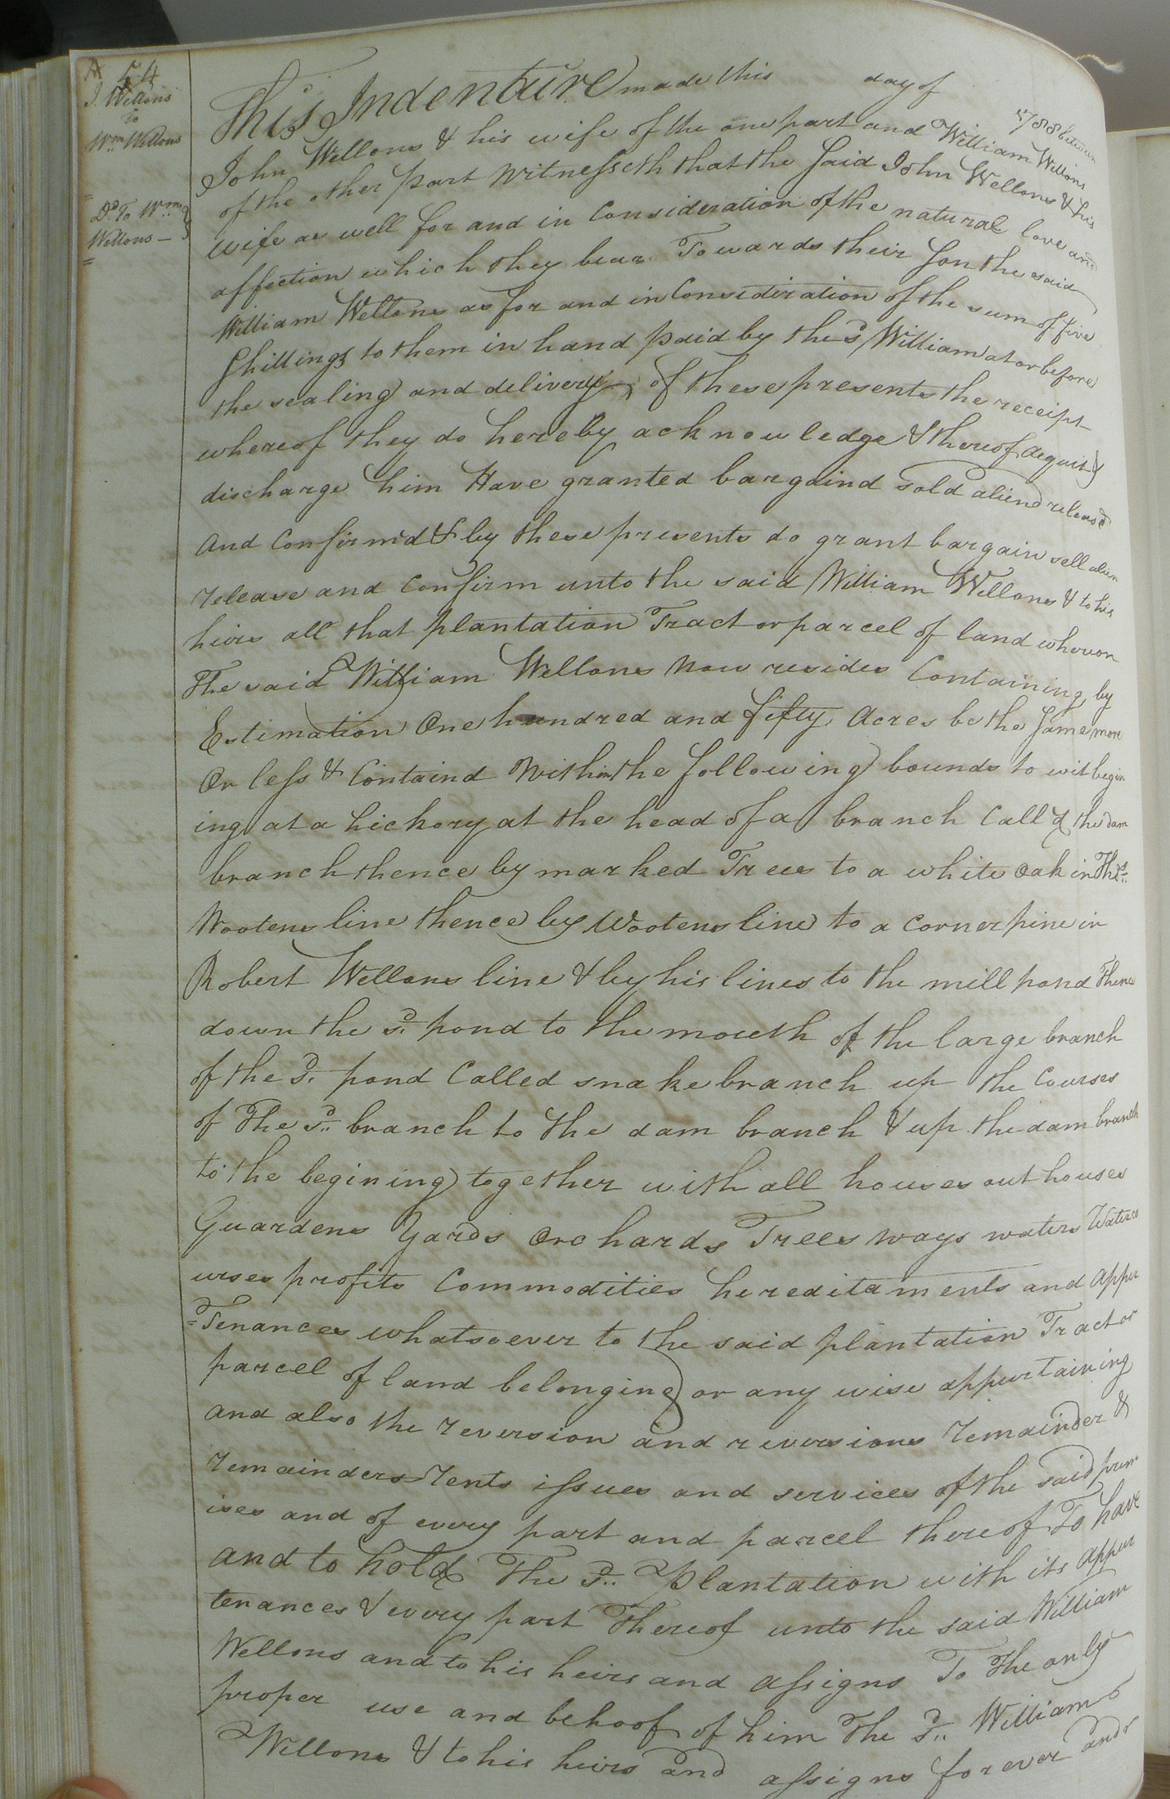 54
J. Wellons
to
Wm Wellons
Do. To Wm
Wellons —
This Indenture made this day of 1788 between
John Wellons & his wife of the one part and William Wellons
of the other part Witnesseth that the said John Wellons & his
wife as well for and in Consideration of the natural love and
affection which they bear Towards their son the said
William Wellons as for and in Consideration of the sum of five
shillings to them in hand paid by the sd. William at or before
the sealing and delivery of these presents the receipt
whereof they do hereby acknowledge & thereof acquit &
discharge him Have granted bargaind sold aliend releasd
And Confirmd & by these presents do grant bargain sell alien
release and Confirm unto the said William Wellons & to his
heirs all that plantation Tract or parcel of land whereon
The said William Wellons now resides Containing by
Estimation One hundred and fifty Acres be the same more
Or less & Containd Within the following bounds to wit begin
ing at a hickory at the head of a branch Calld the dam
branch thence by marked Trees to a white Oak in Thos.
Wootens line thence by Wootens line to a Corner pine in
Robert Wellons line & by his lines to the mill pond thence
down the sd. pond to the mouth of the large branch
of the sd. pond Called snake branch up the Courses
of The sd. branch to the dam branch & up the dam branch
to the begining together with all houses out houses
Guardens Yards Orchards Trees ways waters Waterco
urses profits Commodities hereditaments and Appur
=Tenances whatsoever to the said plantation Tract or
parcel of land belonging or any wise appertaining
and also the reversion and reversions remainder &
remainders rents issues and services of the said prem
ises and of every part and parcel thereof To have
and to hold The sd. plantation with its appur
tenances & every part Thereof unto the said William
Wellons and to his heirs and assigns To The only
proper use and behoof of him The sd. William
Wellons & to his heirs and assigns forever and